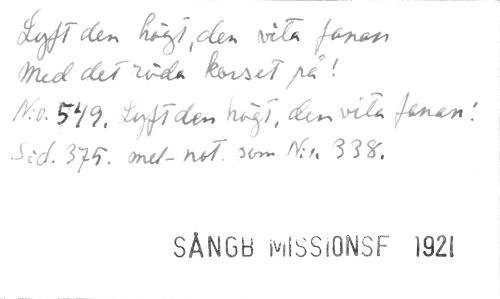 Lyft den högt, den vita fanan
Med det röda korset på!
N:o. 549. Lyft den högt, den vita fanan!
Sid. 375. mel- not. som N:o. 338.
SÅNGB MISSIONSF 1921